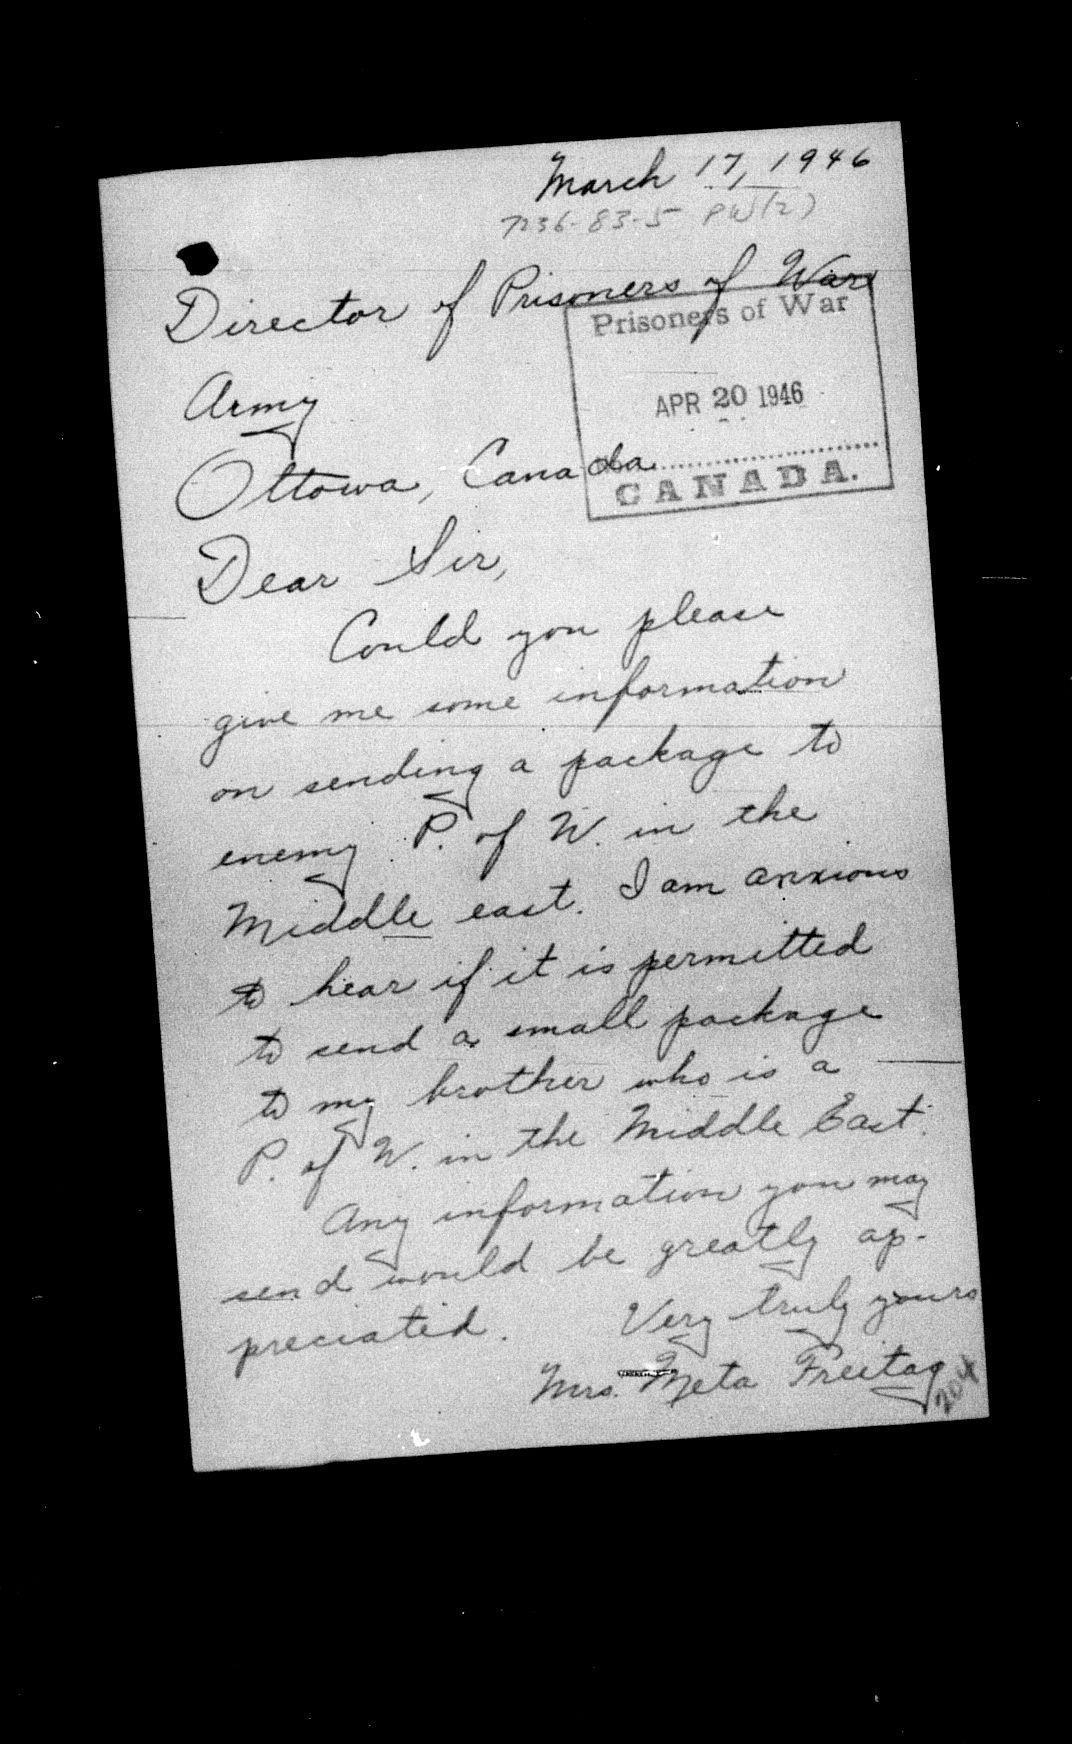 March 17, 1946
7236-83-5 PW(2)
Director of Prisoners of War
Prisoners of War
Army
APR 20 1946
Ottowa, Canada
CANADA.
Dear Sir,
Could you please
give me some information
on sending a package to
enemy P. of W. in the
Middle east. I am anxious
to hear if it is permitted
to send a small package
to my brother who is a
P. of W. in the Middle East.
Any information you may
send would be greatly ap-
preciated. Very truly yours
Mrs. Meta Freitag
204